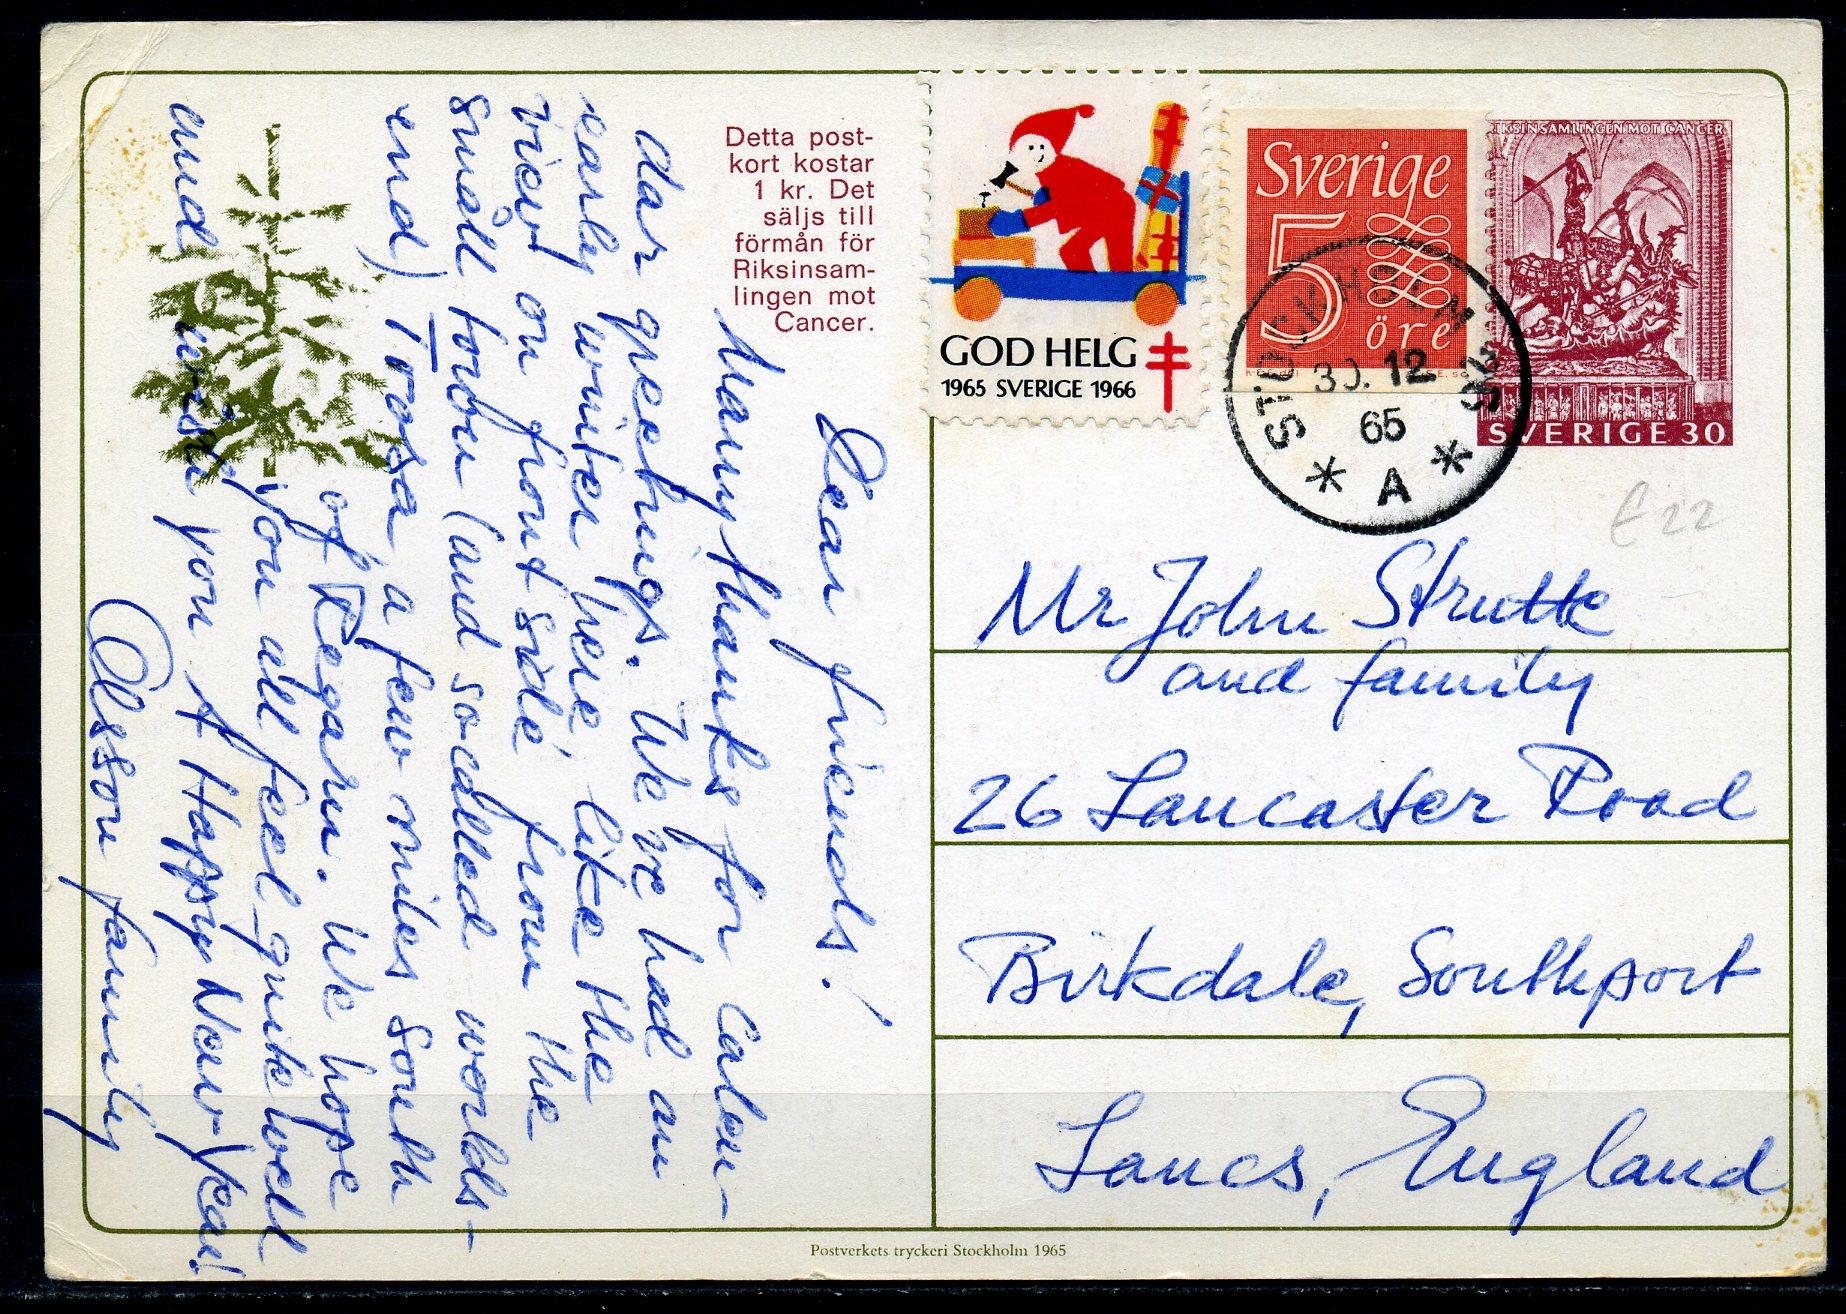 Detta post-
kort kostar
1 kr. Det
säljs till
förmån för
Riksinsam-
lingen mot
Cancer.
GOD HELG
1965 SVERIGE 1966
Sverige
5
öre
RIKSINSAMLINGEN MOT CANCER
SVERIGE 30
STOCKHOLM
30.12
65
* A *
£22
Dear friends!
Many thanks for calen-
dar greetings. We've had an
early winter here like the
view on front side from the
småll torbu (and so called worlds-
end) Torosa a few miles south
of Regarn. We hope
you all feel quite well
and wish you A Happy New Year!
Olsson family
Mr John Strutte
and family
26 Lancaster Road
Birkdale, Southport
Lancs, England
Postverkets tryckeri Stockholm 1965